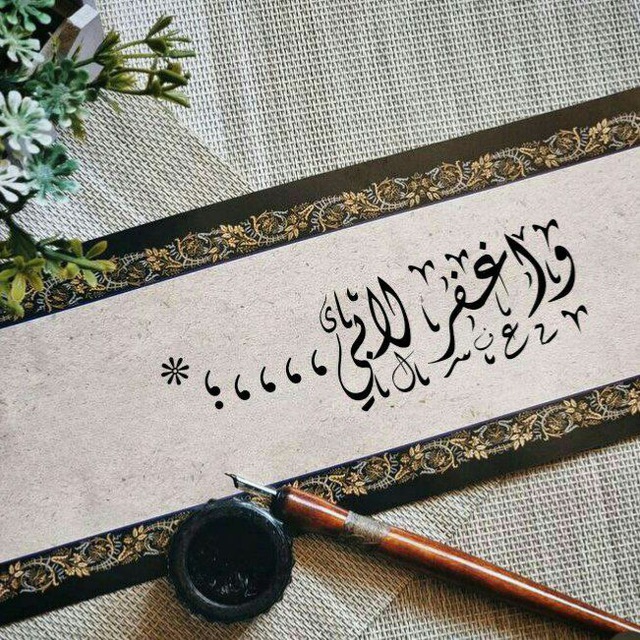 واغفر لابي ،،،،؛ *